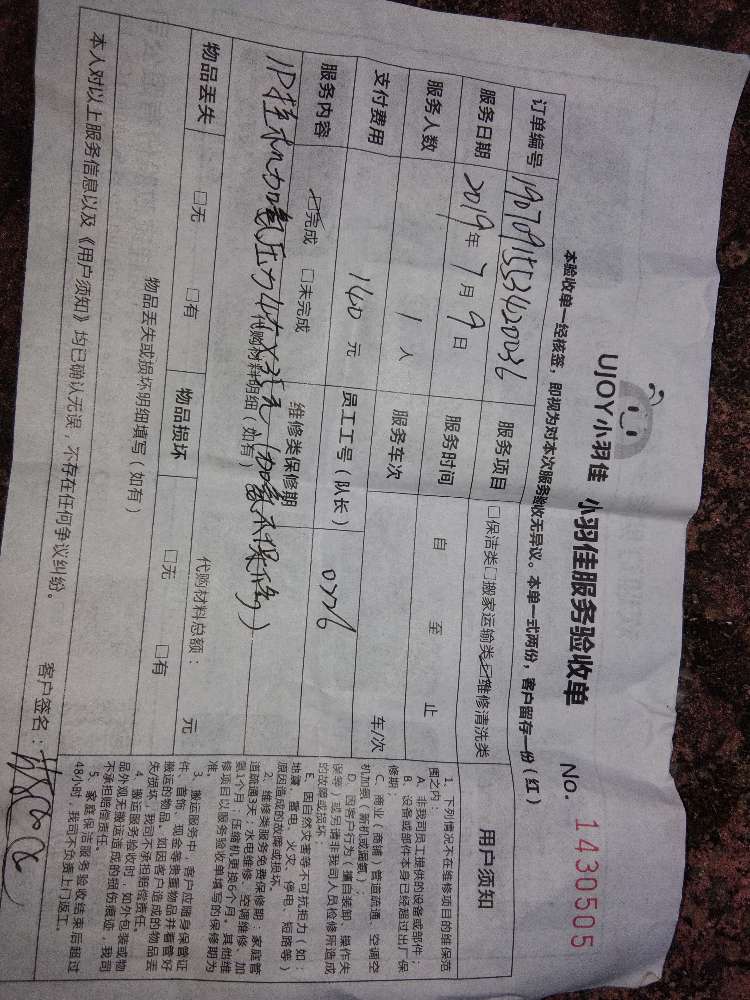 UJOY小羽佳 小羽佳服务验收单 No. 1430505
本验收单一经核签，即视为对本次服务验收无异议。本单一式两份，客户留存一份（红）
订单编号 1907091553420036 服务项目 □保洁类□搬家运输类☑维修清洗类
服务日期 2019年7月9日 服务时间 自 至 止
服务人数 1人 服务车次 车/次
支付费用 140元 员工工号（队长） 0776
服务内容 ☑完成 □未完成 维修类保修期
代购材料明细（如有） 代购材料总额： 元
1P挂机加氟压力4格×35元（加氟不保修）
物品丢失 □无 □有 物品损坏 □无 □有
物品丢失或损坏明细填写（如有）
本人对以上服务信息以及《用户须知》均已确认无误，不存在任何争议纠纷。
客户签名：
用户须知
1、下列情况不在维修项目的维保范
围之内：
A、非我司员工提供的设备或部件；
B、设备或部件本身已经超过出厂保
修期；
C、商业（商铺）管道疏通、空调空
机加氨（新机或漏氨）；
D、因客户行为（擅自装卸、操作失
误等）或另请非我司人员检修所造成
的故障或损坏；
E、因自然灾害等不可抗拒力（如：
地震、雷电、火灾、停电、短路等）
原因造成的故障或损坏。
2、维修类服务免费保修期：家庭管
道疏通3天；水电维修、空调维修、加
氨1个月；压缩机更换6个月。其他维
修项目以服务验收单填写的保修期为
准。
3、搬运服务中，客户应随身保管证
件、首饰、现金等贵重物品并看管好
搬运的物品。如因客户造成的物品丢
失/损坏，我司不承担赔偿责任。
4、搬运服务验收时，如外包装或物
品外观无搬运造成的损伤痕迹，我司
不承担赔偿责任。
5、家庭保洁服务验收结束后超过
48小时，我司不负责上门返工。